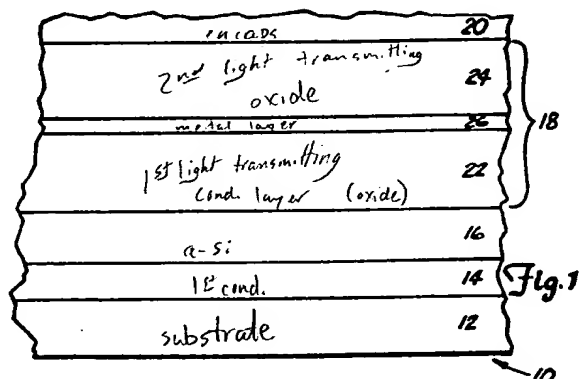 encaps 20
2nd light transmitting 24
oxide
18
metal layer 26
1st light transmitting 22
cond. layer (oxide)
16
a-Si
1st cond. 14 Fig.1
substrate 12
10